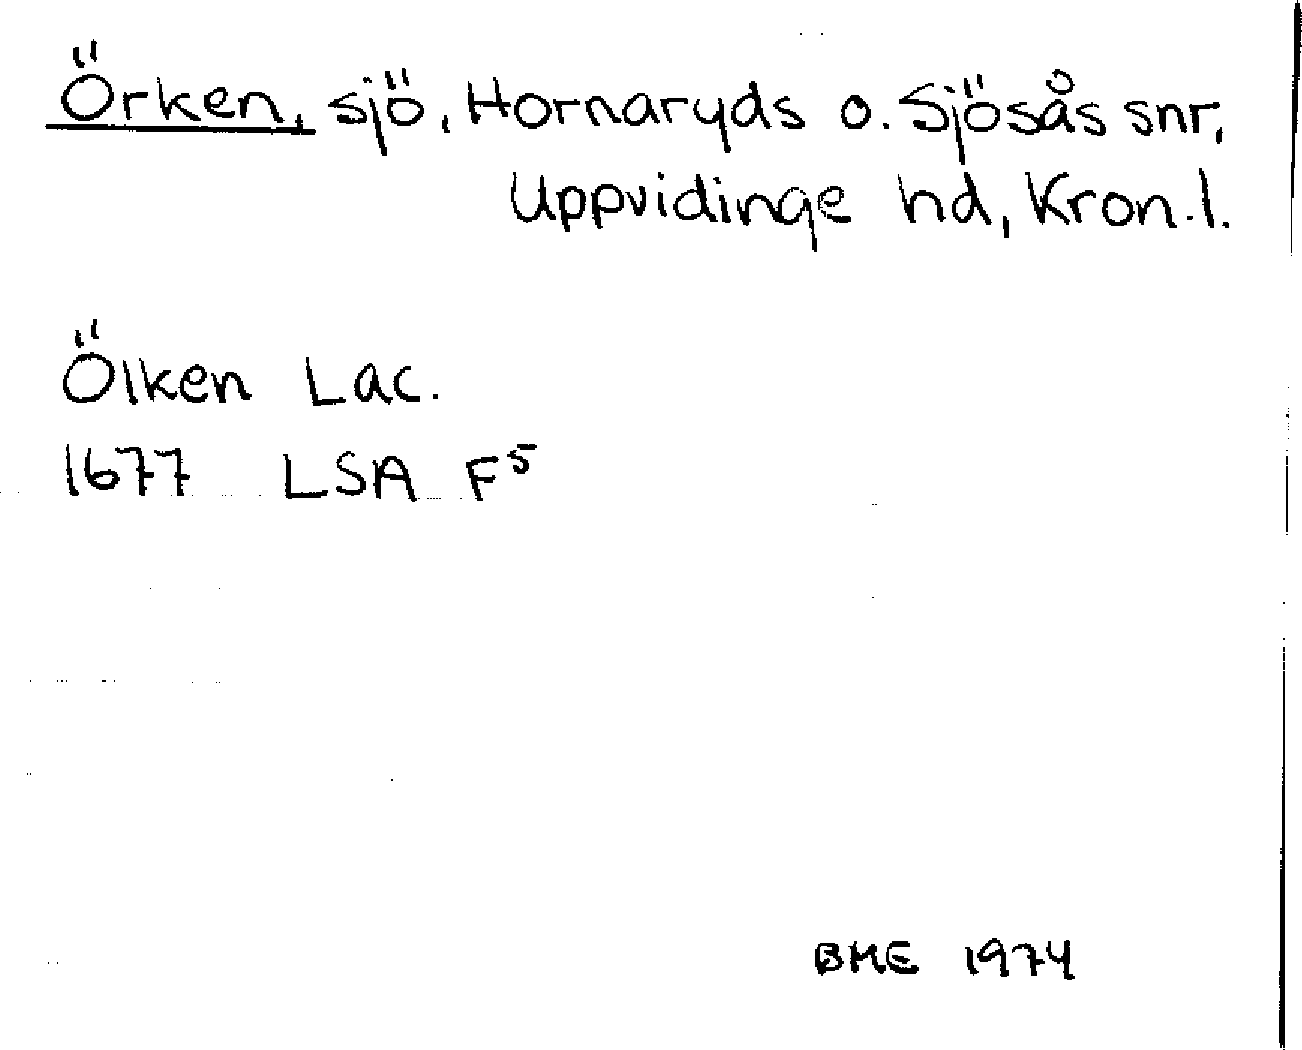 Örken, sjö, Hornaryds o. Sjösås snr,
Uppvidinge hd, Kron.l.
Ölken Lac.
1677 LSA F⁵
BME 1974